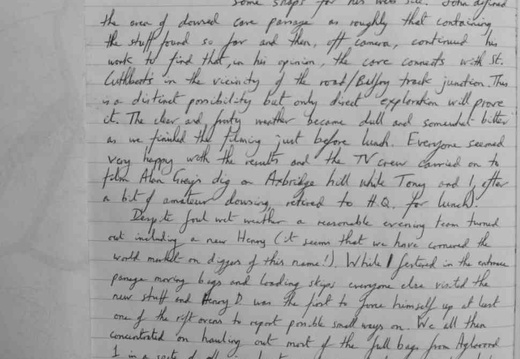 some snaps for his web site. John defined
the area of dowsed cave passage as roughly that containing
the stuff found so far and then, off camera, continued his
work to find that, in his opinion, the cave connects with St.
Cuthbert's in the vicinity of the road/Belfry track junction. This
is a distinct possibility but only direct exploration will prove
it. The clear and frosty weather became dull and somewhat bitter
as we finished the filming just before lunch. Everyone seemed
very happy with the results and the TV crew carried on to
film Alan dig on Axbridge hill while Tony and I, after
a bit of amateur dowsing, retired to H.Q. for lunch!
Despite foul wet weather a reasonable evening team turned
out including a new Henry (it seems that we have cornered the
world market on diggers of this name!). While I festered in the entrance
passage moving bags and loading skips everyone else visited the
new stuff and Henry D was the first to force himself up at least
one of the rift ovens to report possible small ways on. We all then
concentrated on hauling out most of the full bags from Aglarond
1 in a